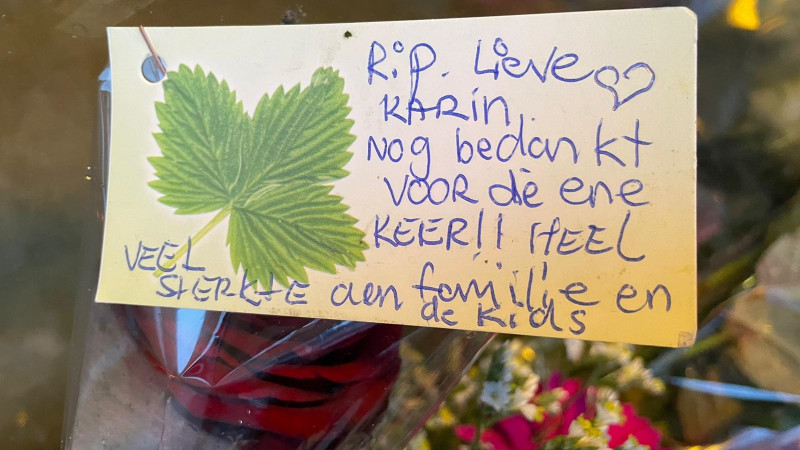 R.i.p. Lieve
KARin.
Nog bedankt
VOOR die ene
KEER!! HEEL
VEEL
STERKTE aan familie en
de Kids